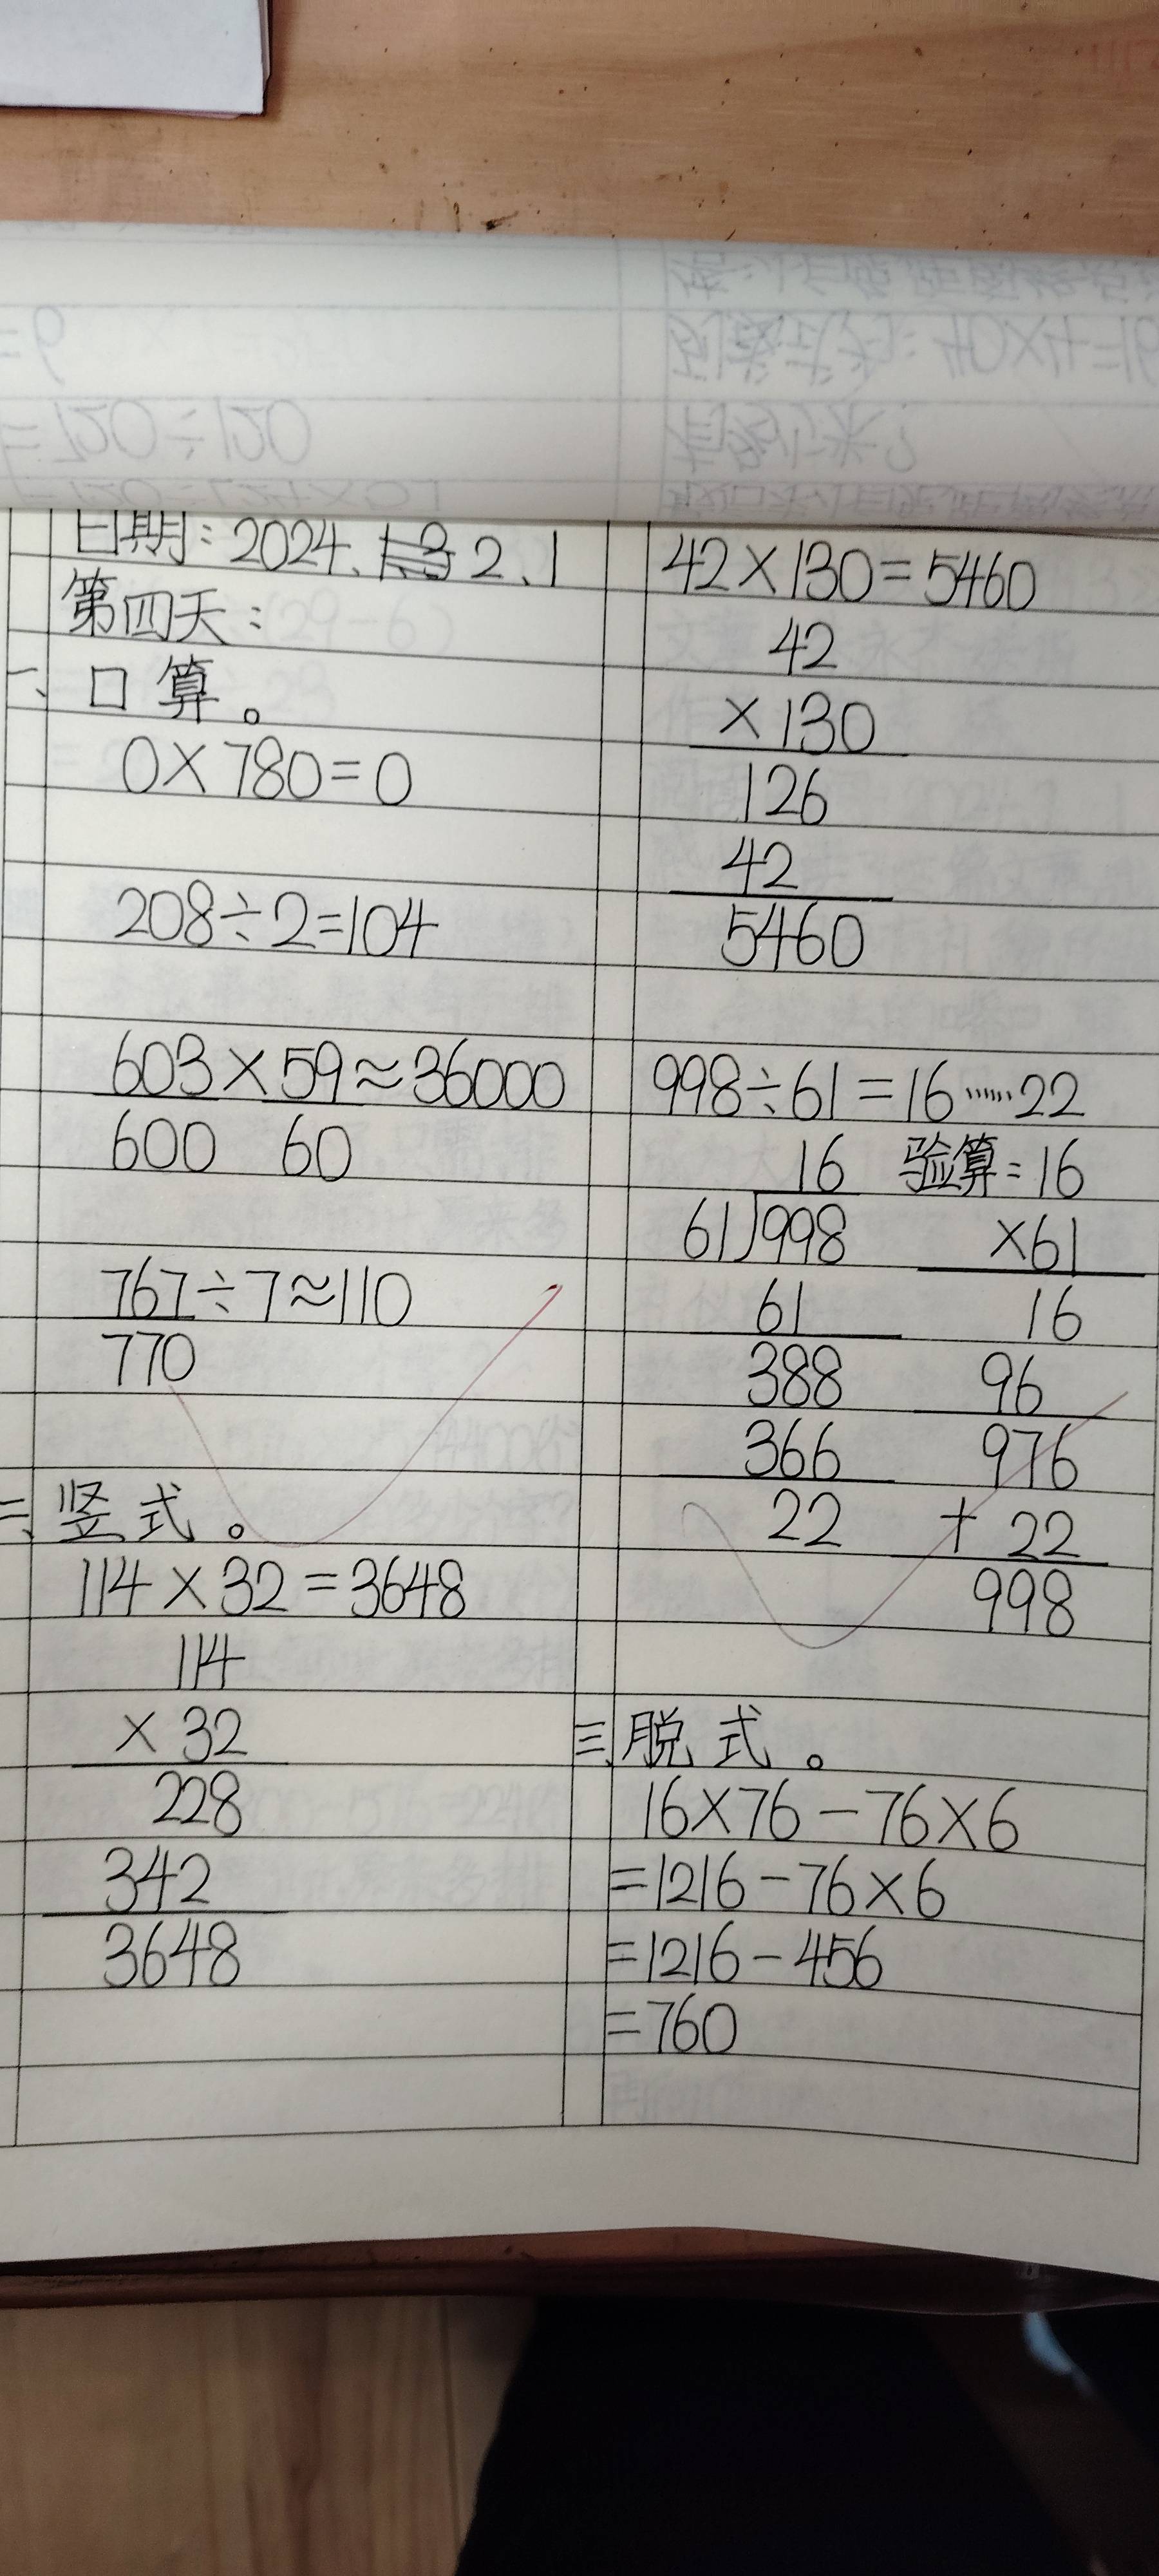 日期:2024.2.1
第四天:
一、口算。
0×780=0
208÷2=104
603×59≈36000
600 60
767÷7≈110
770
二、竖式。
114×32=3648
114
×32
228
342
3648
42×130=5460
42
×130
126
42
5460
998÷61=16……22
16 验算:16
61)998 ×61
61 16
388 96
366 976
22 +22
998
三、脱式。
16×76-76×6
=1216-76×6
=1216-456
=760